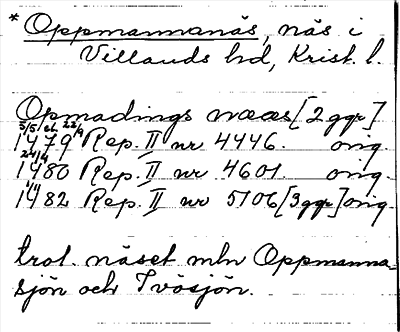 * Oppmannanäs, näs i
Villands hd, Krist. l.
Opmadings næas [2ggr]
5/5 el. 22/9
1479 Rep. II nr 4446. orig.
24/4
1480 Rep. II nr 4601. orig.
1/11
1482 Rep. II nr 5106 [3ggr] orig.
trol. näset mln Oppmanna-
sjön och Ivösjön.